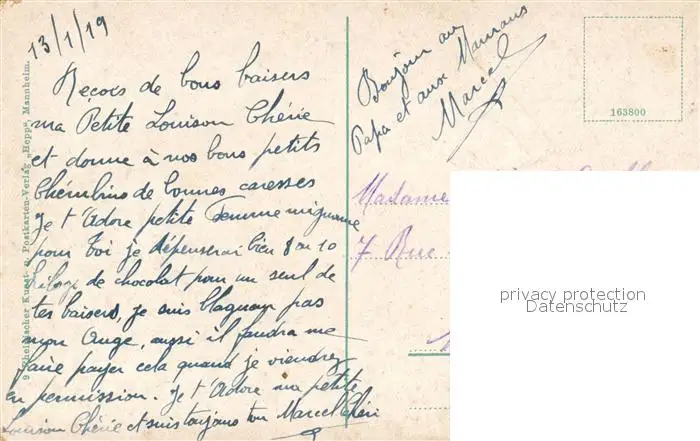 13/1/19
Reçois de bons baisers
ma Petite Louison Chérie
et donne à nos bons petits
Chérubins de bonnes caresses
Je t'Adore petite Femme mignonne
pour Toi je dépenserai bien 8 ou 10
kilogs de chocolat pour un seul de
tes baisers, je suis blagueur pas
mon Ange, aussi il faudra me
faire payer cela quand je viendrez
en permission. Je t'Adore ma petite
Louison Chérie et suis toujours ton Marcel Chéri
Bonjour au
Papa et aux Mamans
Marcel
163800
Madame
7 Rue
Rheinischer Kunst- u. Postkarten-Verlag "Hepp", Mannheim.
privacy protection
Datenschutz